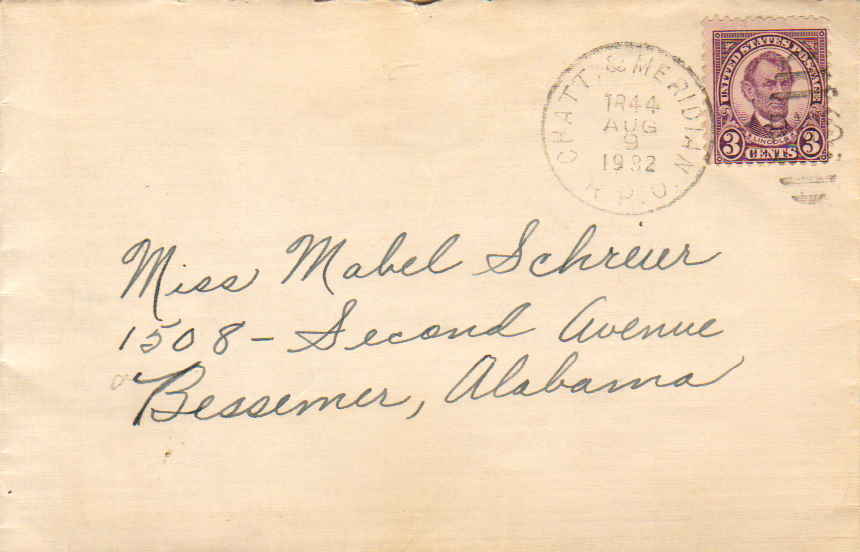 UNITED STATES POSTAGE
LINCOLN
3 CENTS 3
CHATT. & MERIDIAN
TR44
AUG
9
1932
R.P.O.
Miss Mabel Schreier
1508 - Second Avenue
Bessemer, Alabama